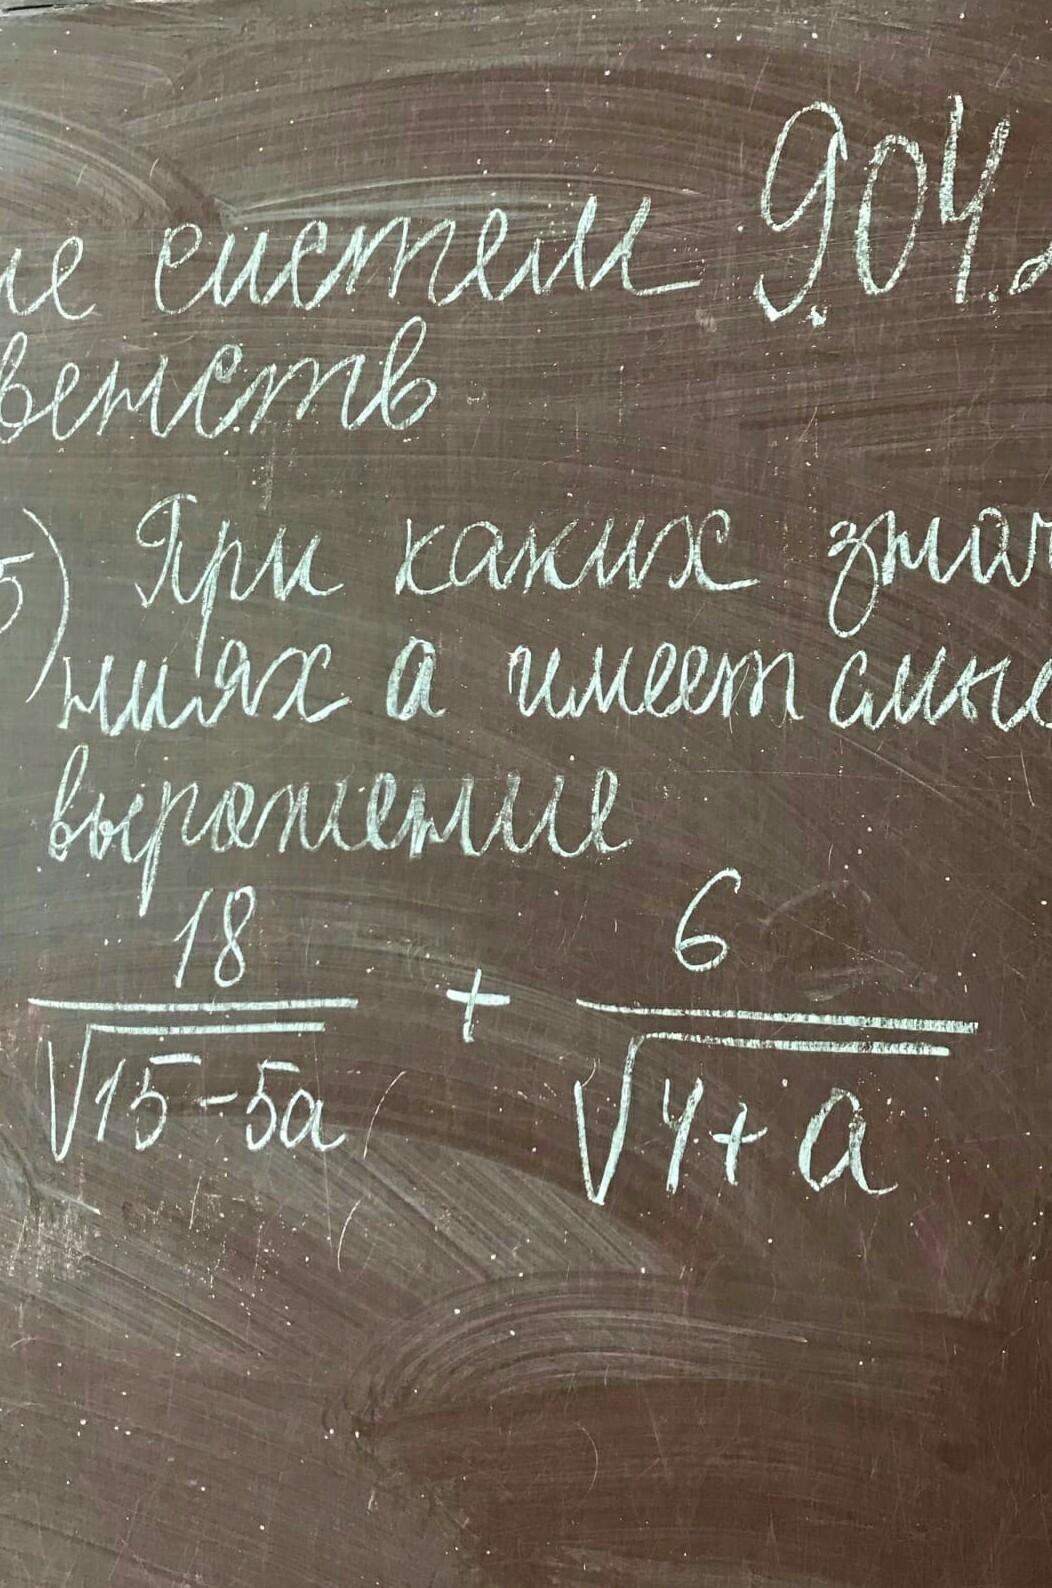 ие систем 9.04.2
венств
5) При каких знач
ниях а имеет смыс
выражение
18/√15-5a + 6/√4+a